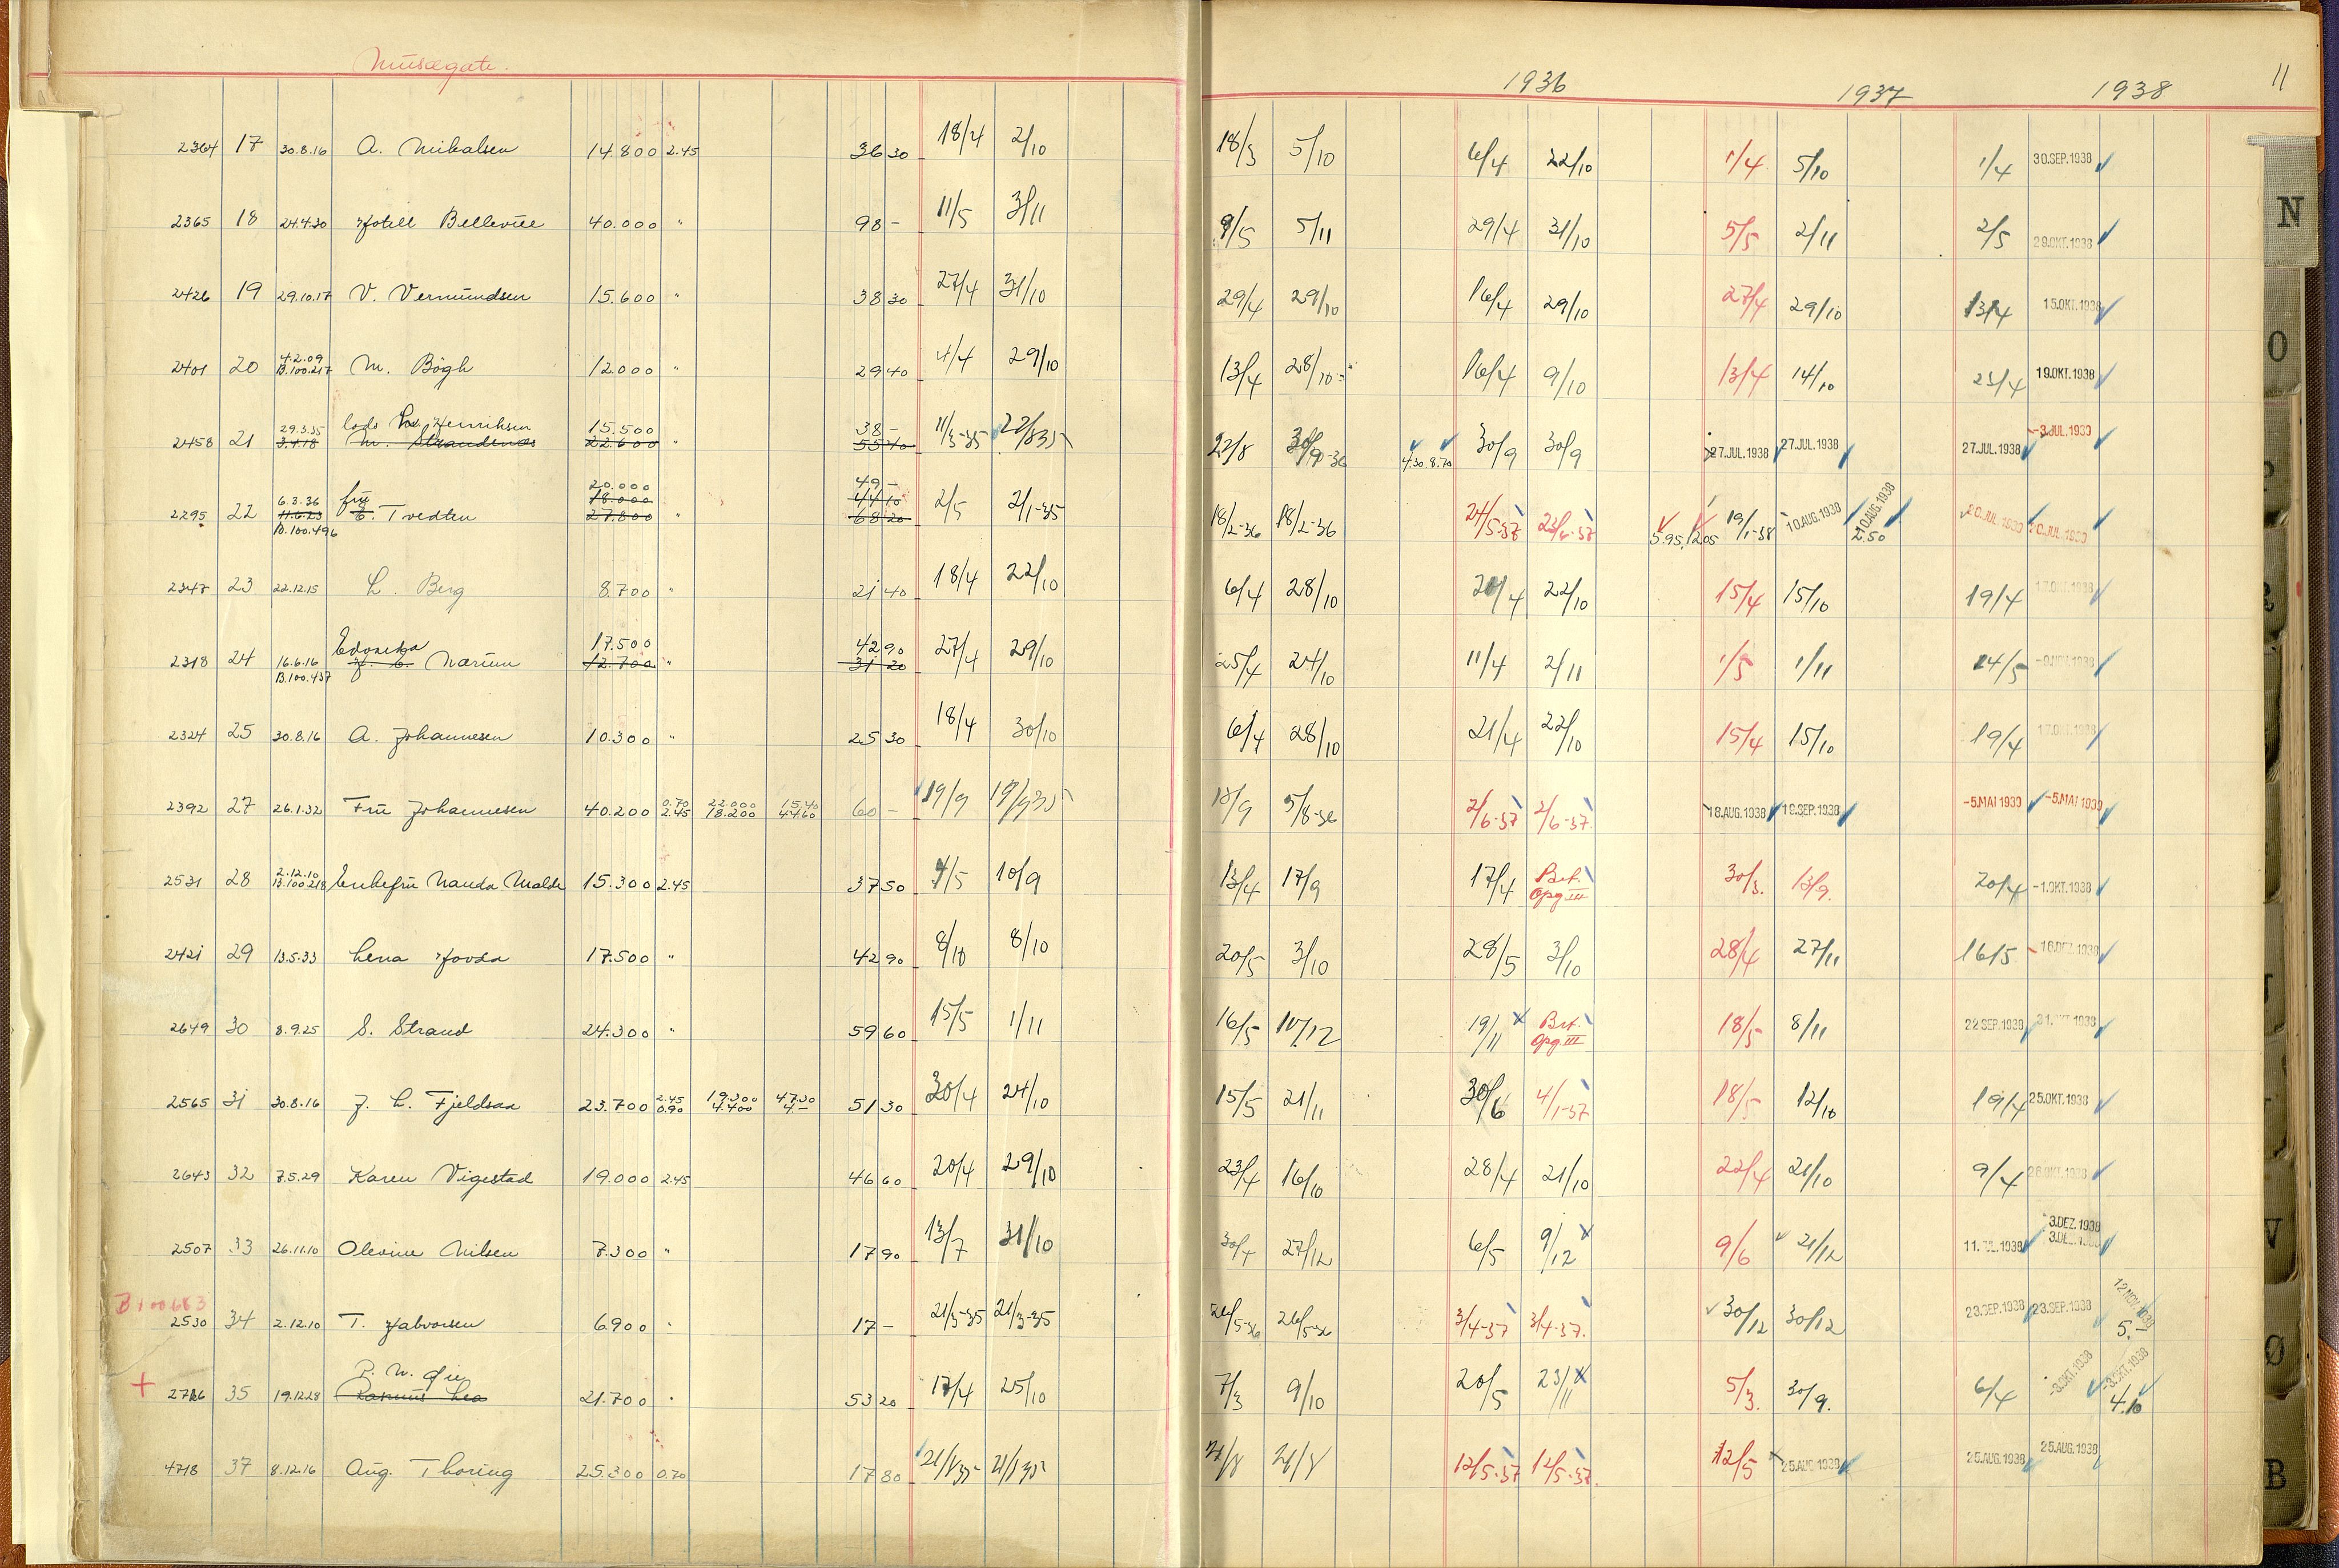 Musegate.
1936 1937 1938 11
2364 17 30.8.16 A. Mikalsen 14.800 2.45 36 30 18/4 2/10 18/3 5/10 6/4 22/10 1/4 5/10 1/4 30.SEP.1938
2365 18 24.4.30 Hotell Bellevue 40.000 " 98 - 11/5 3/11 9/5 5/11 29/4 31/10 5/5 2/11 2/5 29.OKT.1938
2426 19 29.10.17 V. Vermundsen 15.600 " 38 30 27/4 31/10 29/4 29/10 16/4 29/10 27/4 29/10 13/4 15.OKT.1938
4.2.09
2401 20 B.100.217 M. Bögh 12.000 " 29 40 4/4 29/10 13/4 28/10 16/4 9/10 13/4 14/10 23/4 19.OKT.1938
29.3.35 lods Henriksen 15.500 38 -
2458 21 3.4.18 M. Strandenæs 22.600 " 55 40 11/3-35 22/8 30/9-36 4.30 8.70 30/9 30/9 27.JUL.1938 27.JUL.1938 27.JUL.1938
20.000 49 -
6.3.36 fru 18.000 44 10
2295 22 11.6.23 E. Tvedten 27.800 " 68 20 2/5 2/1-35 18/2-36 18/2-36 24/5-37 5.95 12.05 19/1-38 10.AUG.1938 10.AUG.1938 2.50
B.100.496
2347 23 22.12.15 L. Berg 8.700 " 21 40 18/4 22/10 6/4 28/10 22/10 15/4 15/10 19/4
Edoniska 17.500 42 90
2318 24 16.6.16 Narum 12.700 " 31 20 27/4 29/10 25/4 24/10 11/4 2/11 1/5 1/11 14/5
B.100.437
2324 25 30.8.16 A. Johannesen 10.300 " 25 30 18/4 30/10 6/4 28/10 21/4 22/10 15/4 15/10 19/4
0.70 22.000 15.40
2392 27 26.1.32 Fru Johannesen 40.200 2.45 18.200 44.60 60 - 19/9 19/9 35 18/9 5/8-36 2/6-37 2/6-37 18.AUG.1938 19.SEP.1938 -5.MAI 1939 -5.MAI 1939
2.12.10
2531 28 B.100.218 Enkefru Nanda Malde 15.300 2.45 37 50 4/5 10/9 13/4 17/9 17/4 Bet. Opg III 30/3. 13/9. 20/4 -1.OKT.1938
2421 29 13.5.33 Lena Hovda 17.500 " 42 90 8/10 8/10 20/5 3/10 28/5 3/10 28/4 27/11 16/5 16.DEZ.1938
2649 30 8.9.25 S. Strand 24.300 " 59 60 15/5 1/11 16/5 10/12 19/11 Bet. Opg III 18/5 8/11 22.SEP.1938 31.OKT.1938
2.45 19.300 47.30
2565 31 30.8.16 J. L. Fjeldsaa 23.700 0.90 4.400 4.- 51 30 30/4 24/10 15/5 21/11 30/6 4/1-37 18/5 12/10 19/4 25.OKT.1938
2643 32 7.5.29 Karen Vigestad 19.000 2.45 46 60 20/4 29/10 23/4 16/10 28/4 21/10 22/4 21/10 9/4 26.OKT.1938
3.DEZ.1938
2507 33 26.11.10 Olevine Nilsen 7.300 " 17 90 13/7 31/10 30/4 27/12 6/5 9/12 9/6 21/12 11.JUL.1938 3.DEZ.1938
B 100683
2530 34 2.12.10 T. Halvorsen 6.900 " 17 - 21/3-35 21/3-35 26/5-36 26/5-36 3/4-37 3/4-37. 30/12 30/12 23.SEP.1938 23.SEP.1938 12.NOV.1938 5.-
P. N. Øie
2716 35 19.12.28 Rasmus Lea 21.700 " 53 20 17/4 25/10 7/3 9/10 20/5 23/11 5/3. 30/9. 6/4 -3.OKT.1938 -3.OKT.1938 4.10
4718 37 8.12.16 Aug. Thoring 25.300 0.70 17 80 21/8 35 21/8 35 21/8 12/5-37 12/5-37. 12/5 25.AUG.1938 25.AUG.1938 25.AUG.1938
N
O
V
Ø
B